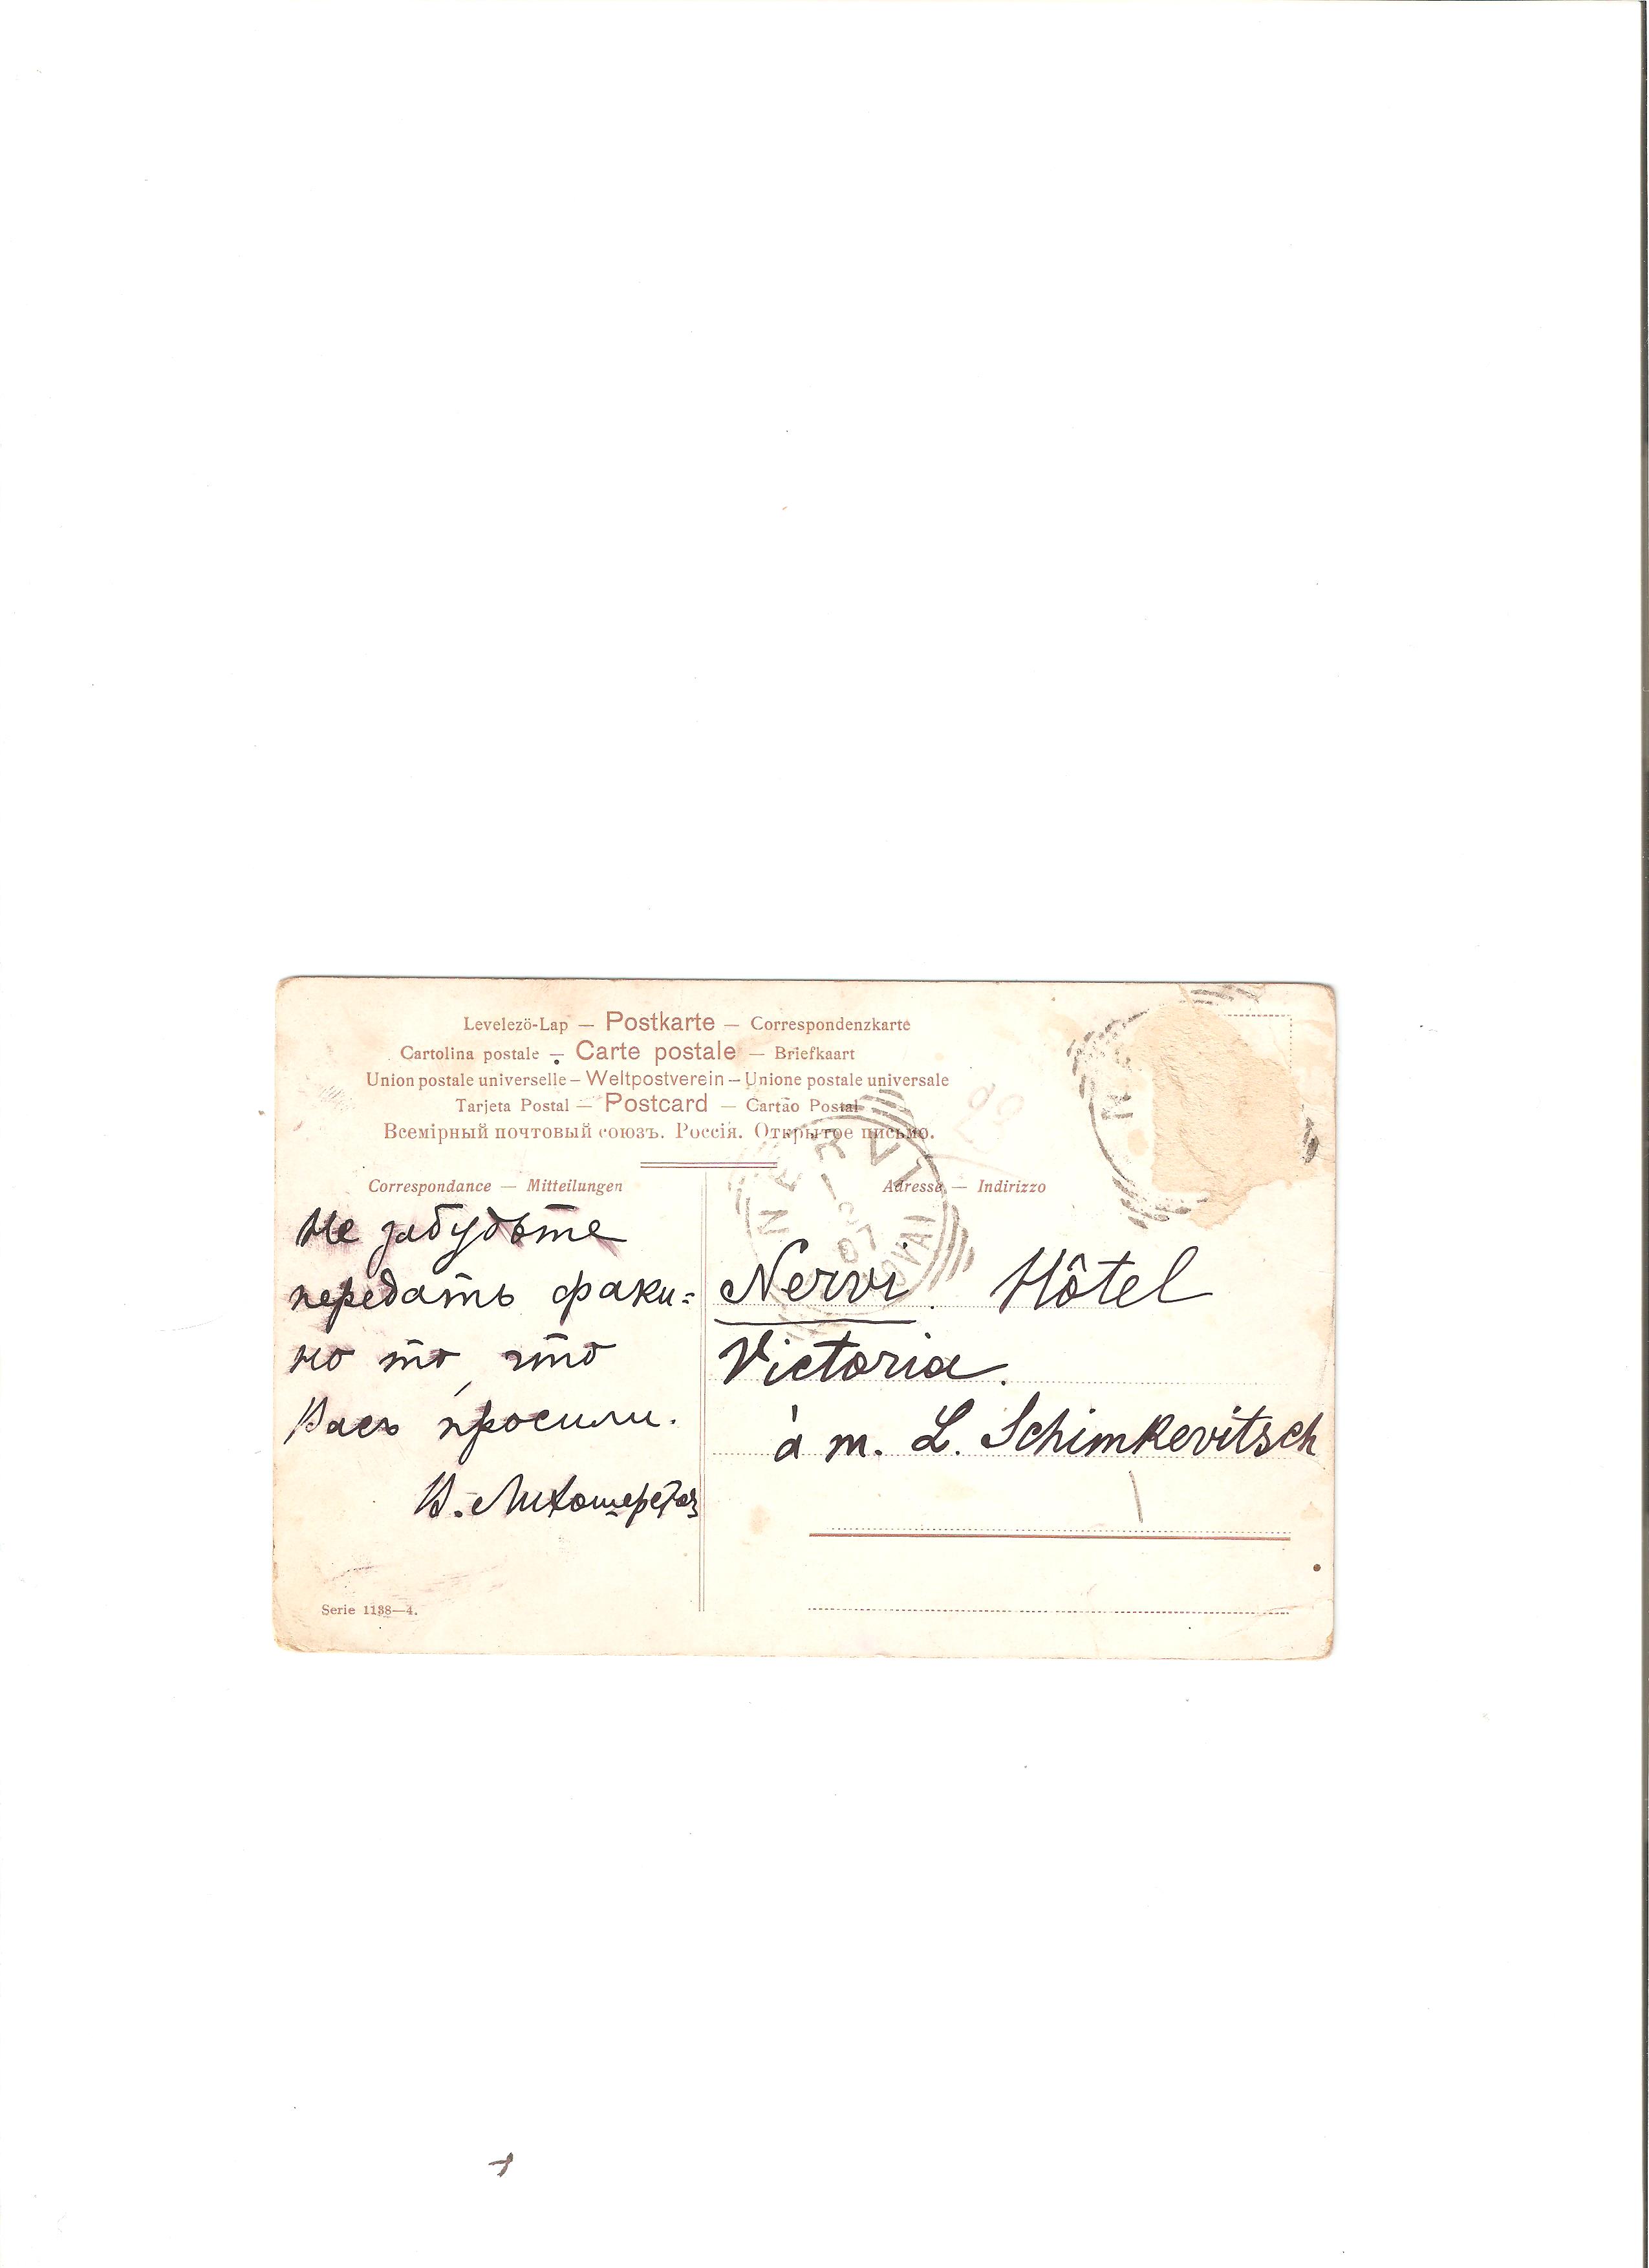 Levelezö-Lap — Postkarte — Correspondenzkarte
Cartolina postale — Carte postale — Briefkaart
Union postale universelle – Weltpostverein – Unione postale universale
Tarjeta Postal — Postcard — Cartão Postal
Всемірный почтовый союзъ. Россія. Открытое письмо.
Correspondance — Mitteilungen
Не забудьте
передать факи=
но то, что
Васъ просили.
В.
Serie 1138—4.
Adresse — Indirizzo
NERVI
07
Nervi. Hôtel
Victoria.
à m. L. Schimkevitsch